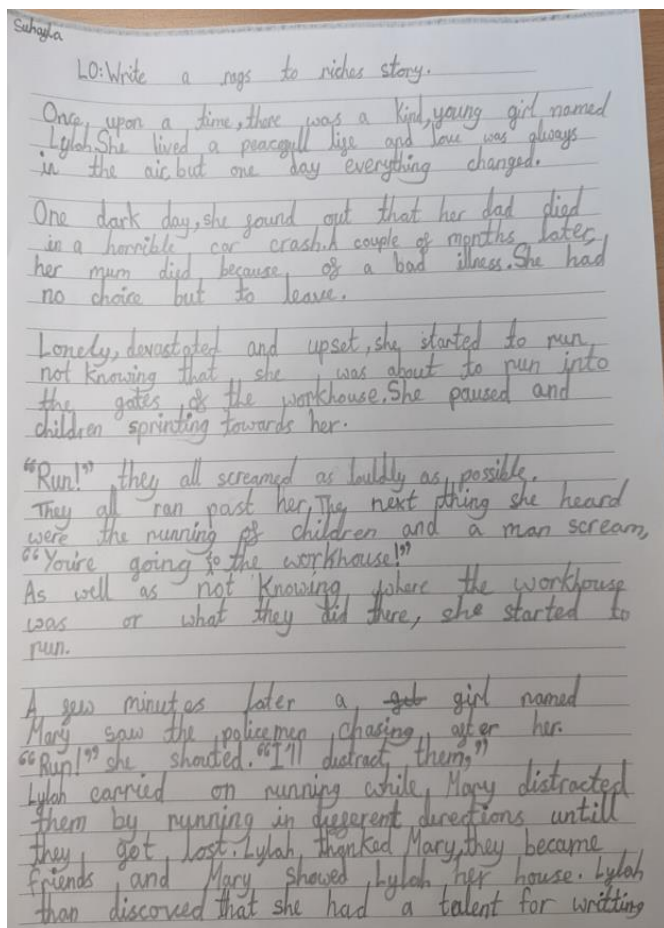 Suhayla
LO: Write a rags to riches story.
Once, upon a time, there was a kind, young girl named
Lylah. She lived a peacefull life and love was always
in the air, but one day everything changed.
One dark day, she found out that her dad died
in a horrible car crash. A couple of months later,
her mum died, because of a bad illness. She had
no choice but to leave.
Lonely, devastated and upset, she started to run,
not knowing that she was about to run into
the gates of the workhouse. She paused and
children sprinting towards her.
"Run!" they all screamed as louldly as possible.
They all ran past her, The next thing she heard
were the running of children and a man scream,
"You're going to the workhouse!"
As well as not knowing where the workhouse
was or what they did there, she started to
run.
A few minutes later a girl named
Mary saw the policemen chasing after her.
"Run!" she shouted. "I'll distract them,"
Lylah carried on running while, Mary distracted
them by running in different directions untill
they got lost. Lylah thanked Mary, they became
friends and Mary showed Lylah her house. Lylah
than discoved that she had a talent for writting